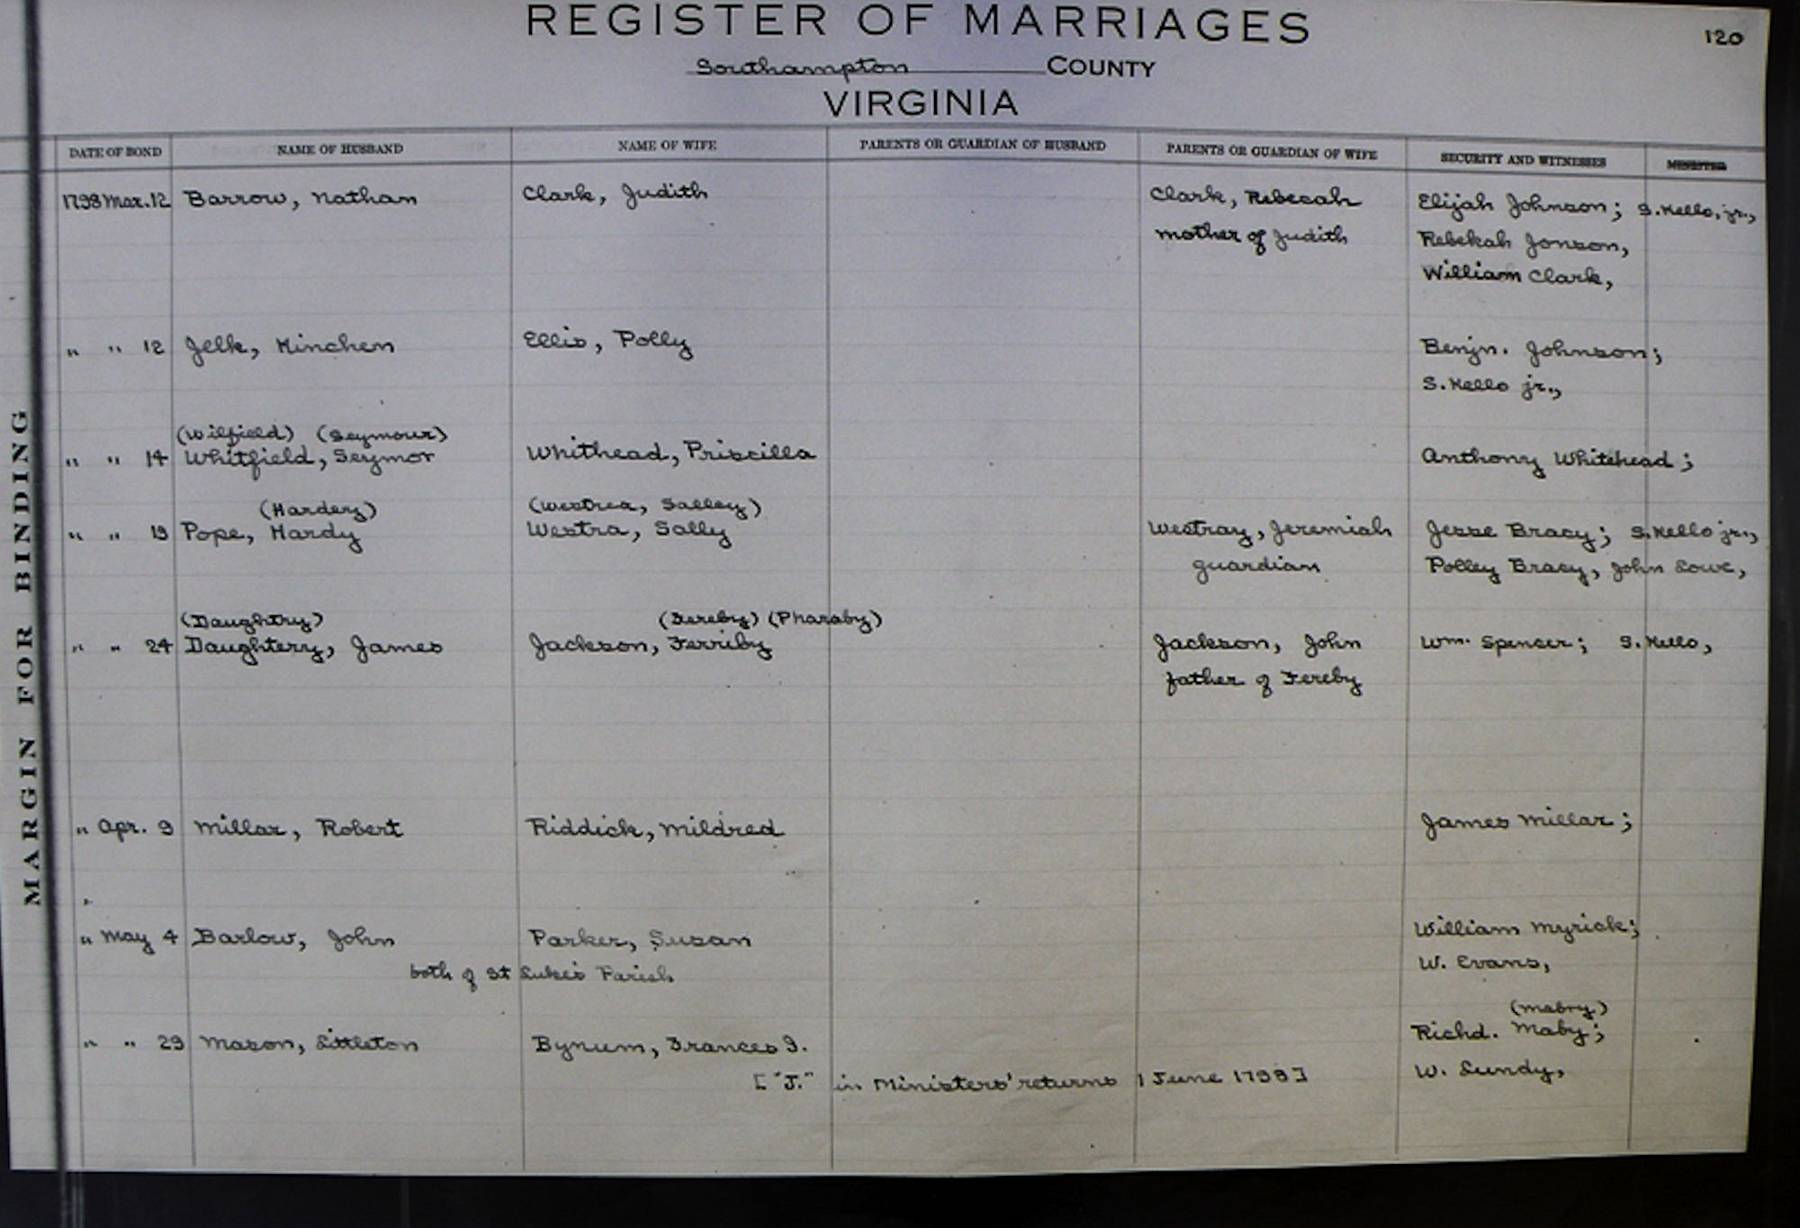 REGISTER OF MARRIAGES
120
Southampton COUNTY
VIRGINIA
DATE OF BOND NAME OF HUSBAND NAME OF WIFE PARENTS OR GUARDIAN OF HUSBAND PARENTS OR GUARDIAN OF WIFE SECURITY AND WITNESSES MINISTER
1798 Mar. 12 Barrow, Nathan Clark, Judith Clark, Rebecah Elijah Johnson; S. Kello, jr.,
mother of Judith Rebekah Jonson,
William Clark,
" " 12 Jelk, Kinchen Ellis, Polly Benjn. Johnson;
S. Kello jr.,
(Wilfield) (Seymour)
" " 14 Whitfield, Seymor Whithead, Priscilla Anthony Whitehead;
(Hardey) (Westrea, Salley)
" " 19 Pope, Hardy Westra, Sally Westray, Jeremiah Jesse Bracy; S. Kello jr.,
guardian Polley Bracy, John Lowe,
(Daughtry) (Fereby) (Pharaby)
" " 24 Daughtery, James Jackson, Ferriby Jackson, John Wm. Spencer; S. Kello,
father of Fereby
" Apr. 9 Millar, Robert Riddick, Mildred James Millar;
" May 4 Barlow, John Parker, Susan William Myrick;
both of St Luke's Parish W. Evans,
(Mabry)
" " 29 Mason, Littleton Bynum, Frances I. Richd. Maby;
["J." in Ministers' returns 1 June 1798] W. Lundy,
MARGIN FOR BINDING